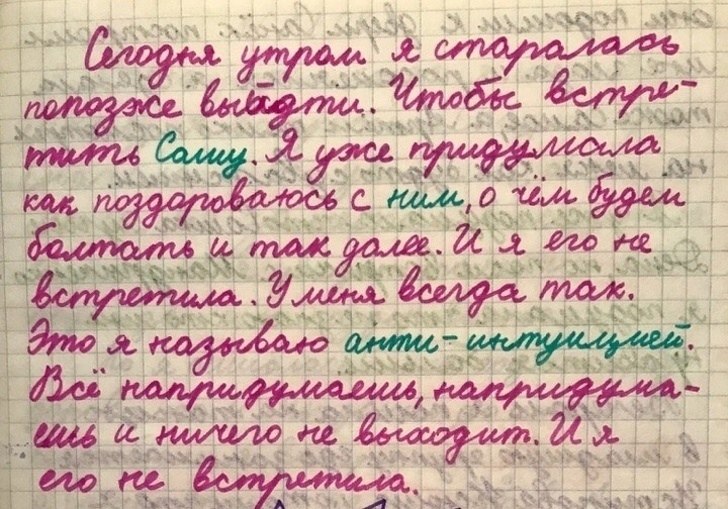 Сегодня утром я старалась
попозже выйдти. Чтобы встре-
тить Сашу. Я уже придумала
как поздороваюсь с ним, о чём будем
болтать и так далее. И я его не
встретила. У меня всегда так.
Это я называю анти-интуицией.
Всё напридумаешь, напридума-
ешь и ничего не выходит. И я
его не встретила.